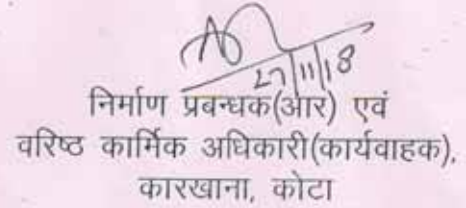 27/11/18
निर्माण प्रबन्धक(आर) एवं
वरिष्ठ कार्मिक अधिकारी(कार्यवाहक),
कारखाना, कोटा